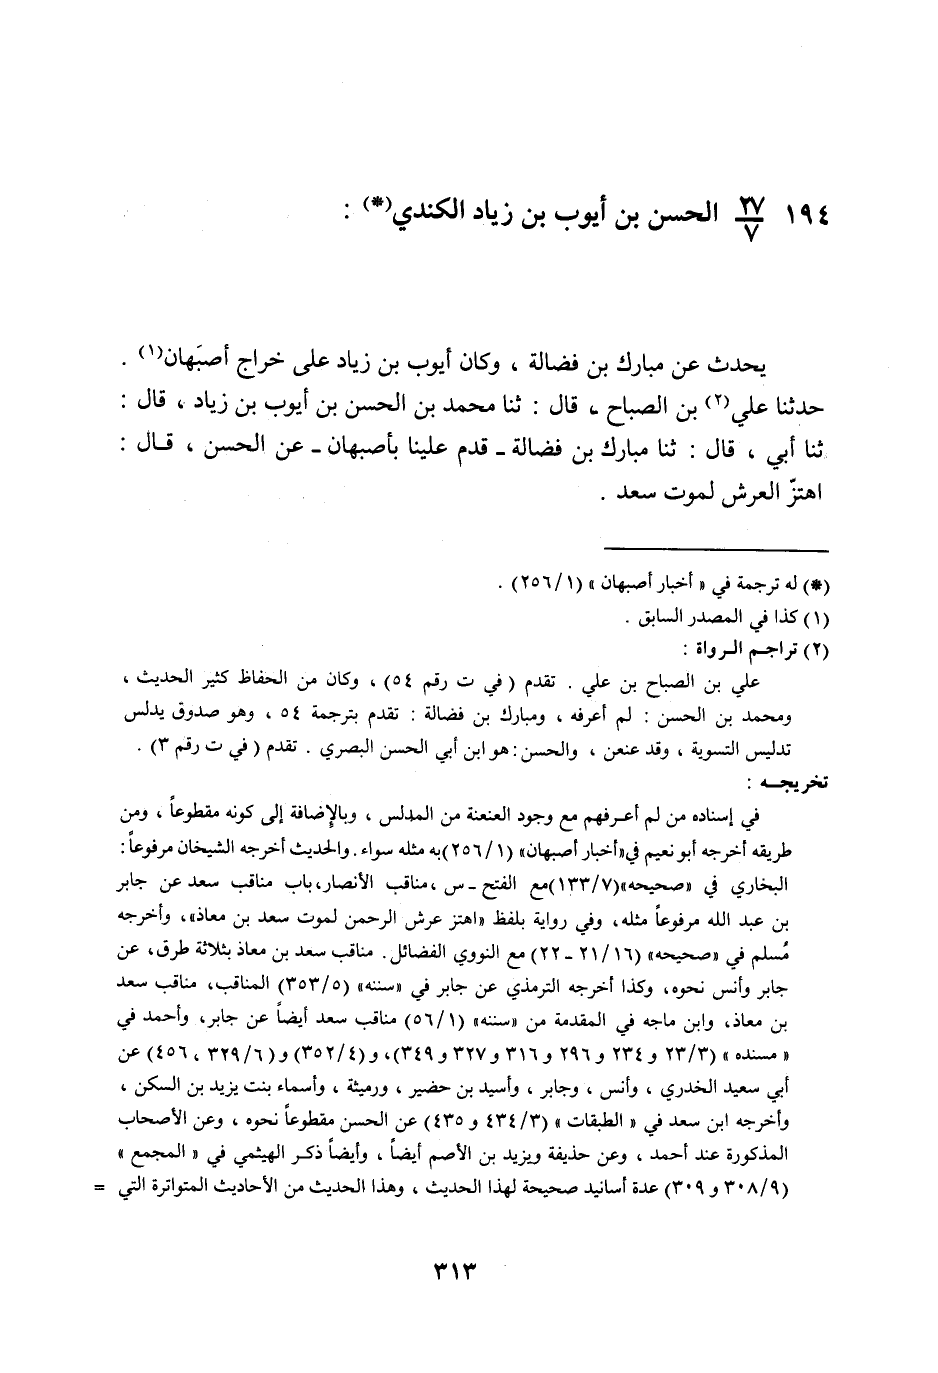 ١٩٤ ٢٧/٧ الحسن بن أيوب بن زياد الكندي(*) :
يحدث عن مبارك بن فضالة ، وكان أيوب بن زياد على خراج أصبَهان(١) .
حدثنا علي(٢) بن الصباح ، قال : ثنا محمد بن الحسن بن أيوب بن زياد ، قال :
ثنا أبي ، قال : ثنا مبارك بن فضالة ـ قدم علينا بأصبهان ـ عن الحسن ، قـال :
اهتزّ العرش لموت سعد .
(*) له ترجمة في « أخبار أصبهان » (٢٥٦/١) .
(١) كذا في المصدر السابق .
(٢) تراجـم الـرواة :
علي بن الصباح بن علي . تقدم ( في ت رقم ٥٤) ، وكان من الحفاظ كثير الحديث ،
ومحمد بن الحسن : لم أعرفه ، ومبارك بن فضالة : تقدم بترجمة ٥٤ ، وهو صدوق يدلس
تدليس التسوية ، وقد عنعن ، والحسن : هو ابن أبي الحسن البصري . تقدم ( في ت رقم ٣) .
تخريجـه :
في إسناده من لم أعرفهم مع وجود العنعنة من المدلس ، وبالإضافة إلى كونه مقطوعاً ، ومن
طريقه أخرجه أبو نعيم في«أخبار أصبهان» (٢٥٦/١)به مثله سواء . والحديث أخرجه الشيخان مرفوعاً :
البخاري في «صحيحه»(١٣٣/٧)مع الفتح ـ س ،مناقب الأنصار،باب مناقب سعد عن جابر
بن عبد الله مرفوعاً مثله، وفي رواية بلفظ «اهتز عرش الرحمن لموت سعد بن معاذ»، وأخرجه
مُسلم في «صحيحه» (٢١/١٦ ـ ٢٢) مع النووي الفضائل. مناقب سعد بن معاذ بثلاثة طرق، عن
جابر وأنس نحوه، وكذا أخرجه الترمذي عن جابر في «سننه» (٣٥٣/٥) المناقب، مناقب سعد
بن معاذ، وابن ماجه في المقدمة من «سننه» (٥٦/١) مناقب سعد أيضاً عن جابر، وأحمد في
« مسنده » (٢٣/٣ و ٢٣٤ و ٢٩٦ و ٣١٦ و ٣٢٧ و ٣٤٩)، و(٣٥٢/٤) و( ٣٢٩/٦ ، ٤٥٦) عن
أبي سعيد الخدري ، وأنس ، وجابر ، وأسيد بن حضير ، ورميثة ، وأسماء بنت يزيد بن السكن ،
وأخرجه ابن سعد في « الطبقات » (٤٣٤/٣ و ٤٣٥) عن الحسن مقطوعاً نحوه ، وعن الأصحاب
المذكورة عند أحمد ، وعن حذيفة ويزيد بن الأصم أيضاً ، وأيضاً ذكـر الهيثمي في « المجمع »
(٣٠٨/٩ و ٣٠٩) عدة أسانيد صحيحة لهذا الحديث ، وهذا الحديث من الأحاديث المتواترة التي =
٣١٣